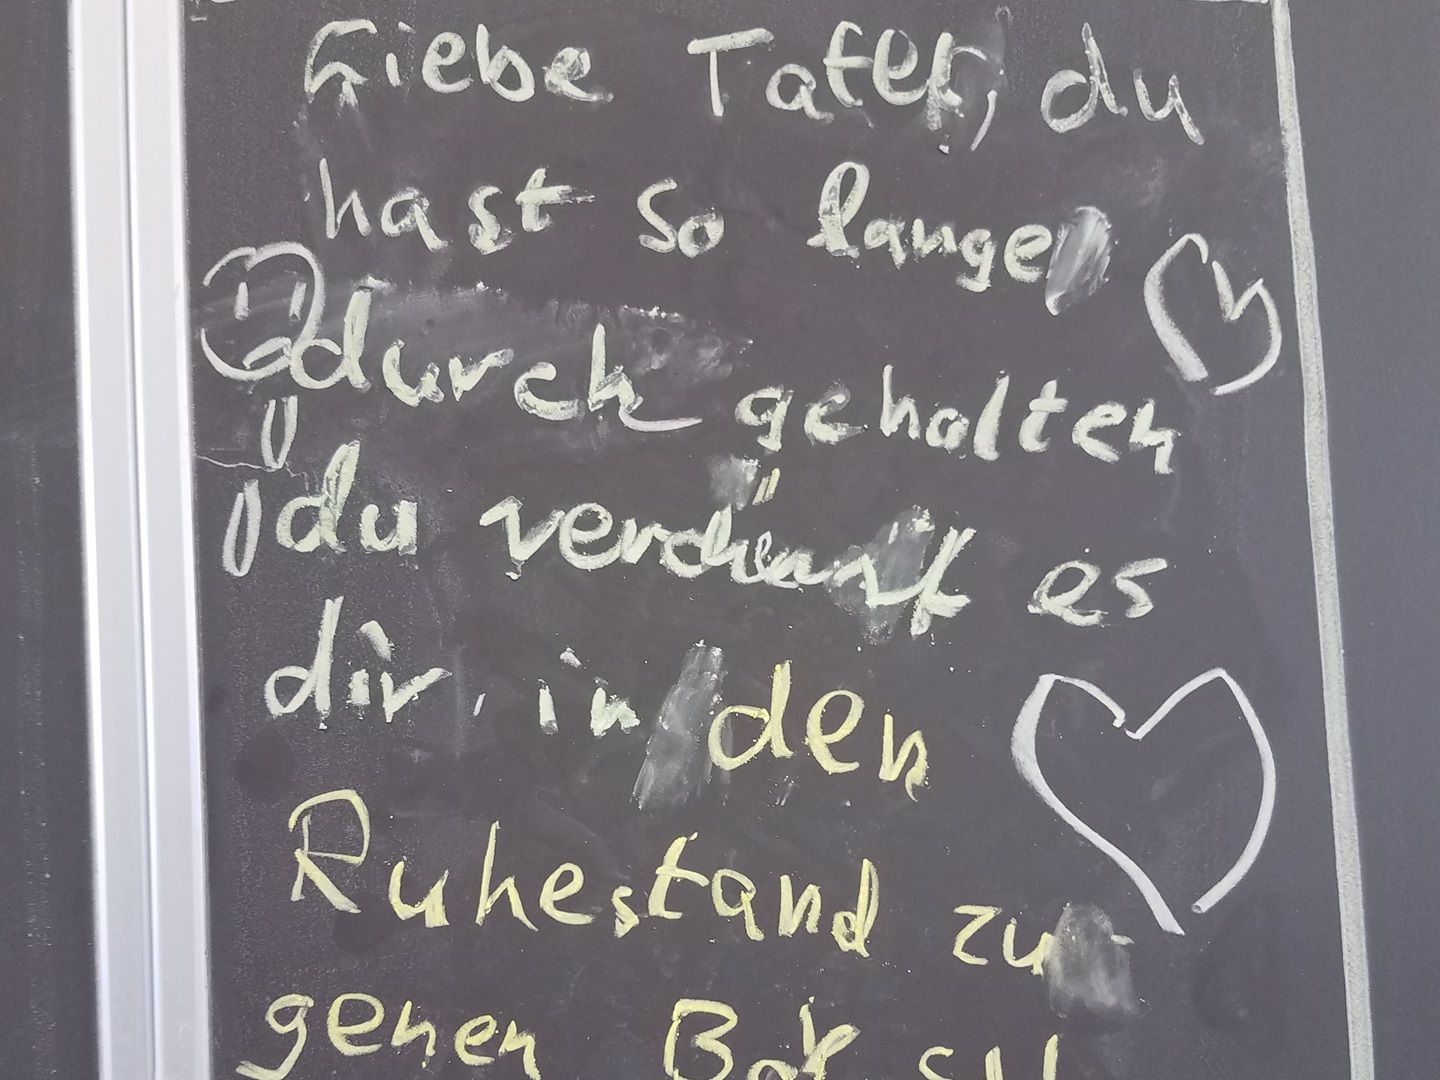 Liebe Tafel, du
hast so lange
durch gehalten
du verdienst es
dir, in den
Ruhestand zu
gehen